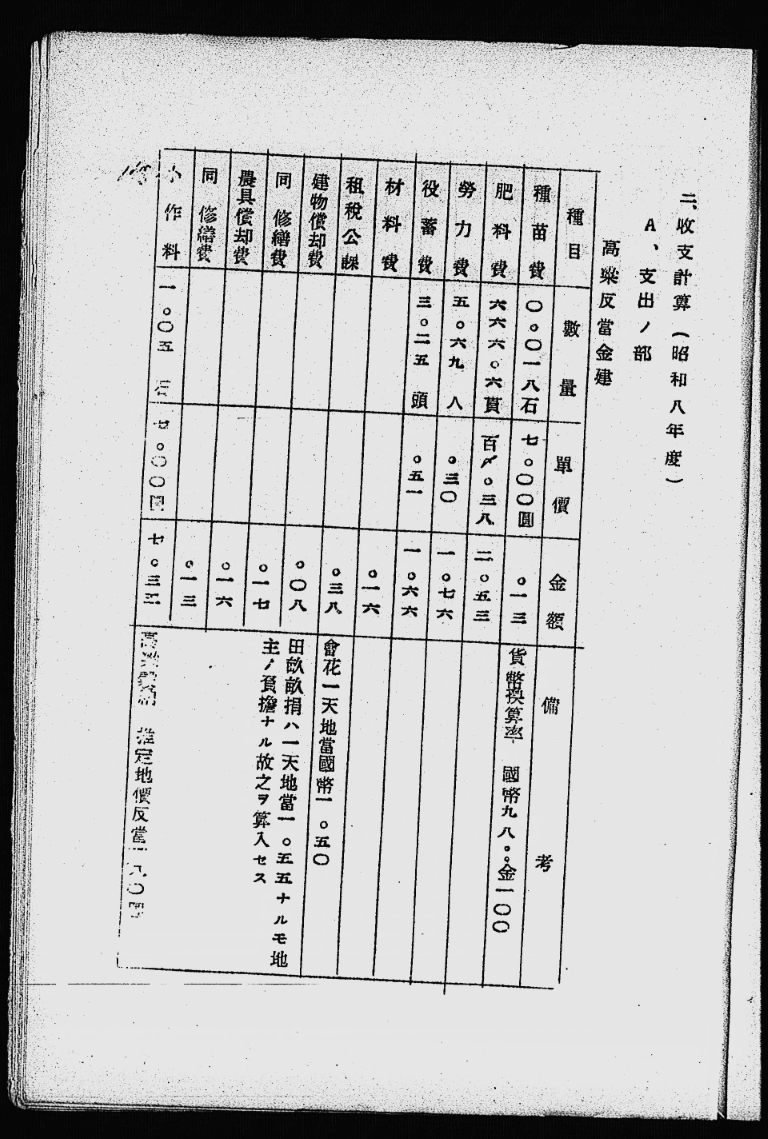 二、收支計算（昭和八年度）
A、支出ノ部
高粱反當金建
種目 數量 單價 金額 備考
種苗費 〇。〇一八石 七。〇〇圓 。一三 貨幣換算率 國幣九八。。金一〇〇
肥料費 六六六。六貫 百〆。三八 二。五三
勞力費 五。六九人 。三〇 一。七六
役蓄費 三。二五頭 。五一 一。六六
材料費 。一六
租稅公課 。三八 會花一天地當國幣一。五〇
建物償却費 。〇八 田畝畝捐ハ一天地當一。五五ナルモ地
同修繕費 。一七 主ノ負擔ナル故之ヲ算入セス
農具償却費 。一六
同修繕費 。一三
小作料 一。〇五 七。〇〇圓 七。三 推定地價反當